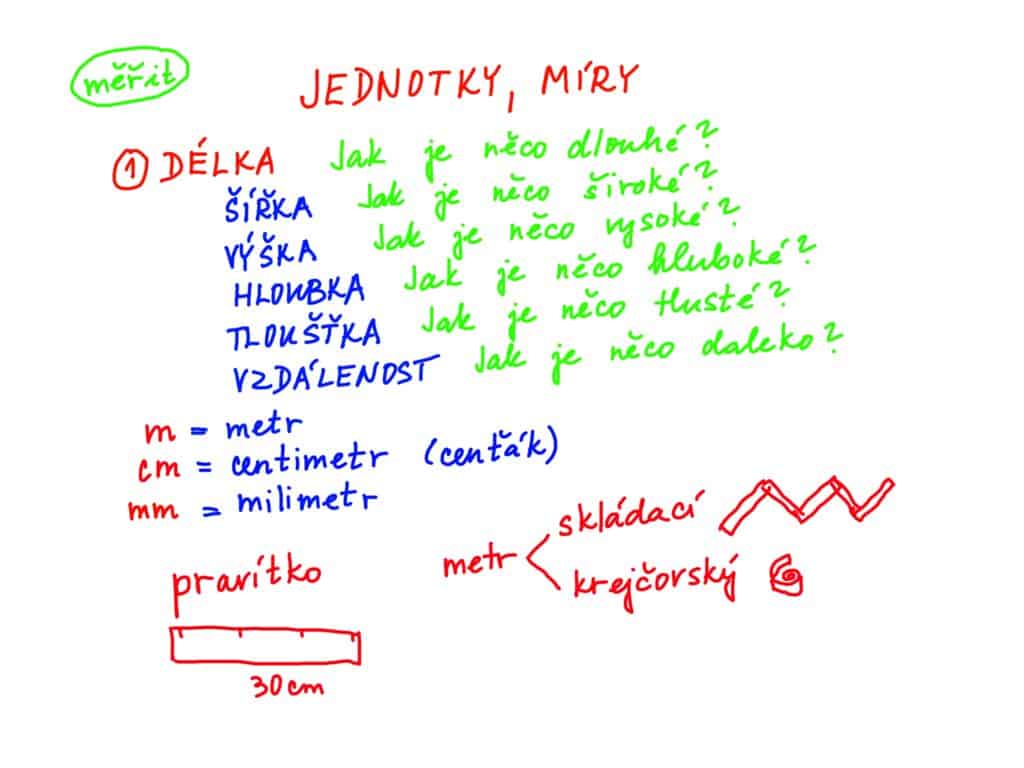 měřit
JEDNOTKY, MÍRY
① DÉLKA Jak je něco dlouhé?
ŠÍŘKA Jak je něco široké?
VÝŠKA Jak je něco vysoké?
HLOUBKA Jak je něco hluboké?
TLOUŠŤKA Jak je něco tlusté?
VZDÁLENOST Jak je něco daleko?
m = metr
cm = centimetr (centˇák)
mm = milimetr
pravítko
30 cm
metr
skládací
krejčorský